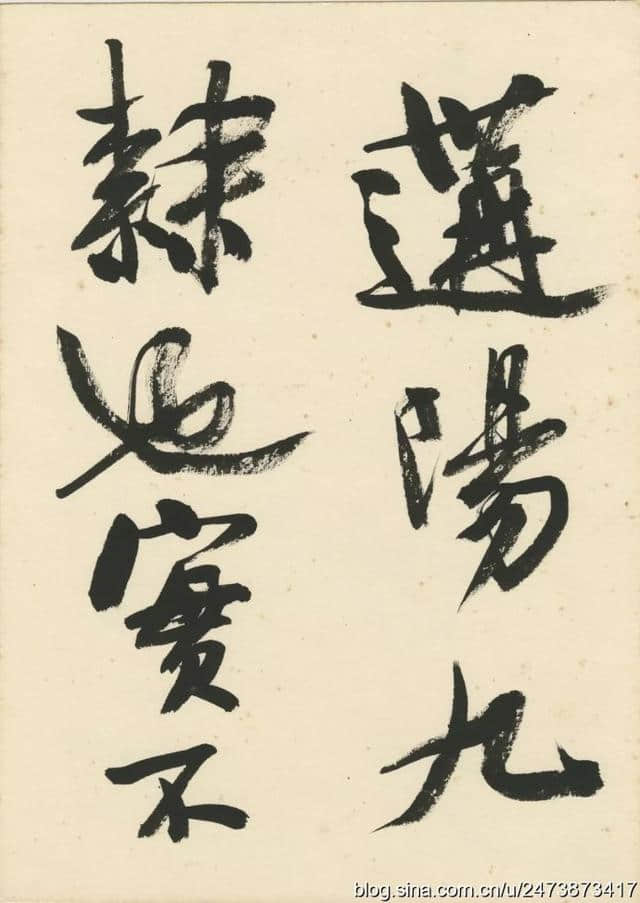 遘陽九
隸也實不
blog.sina.com.cn/u/2473873417